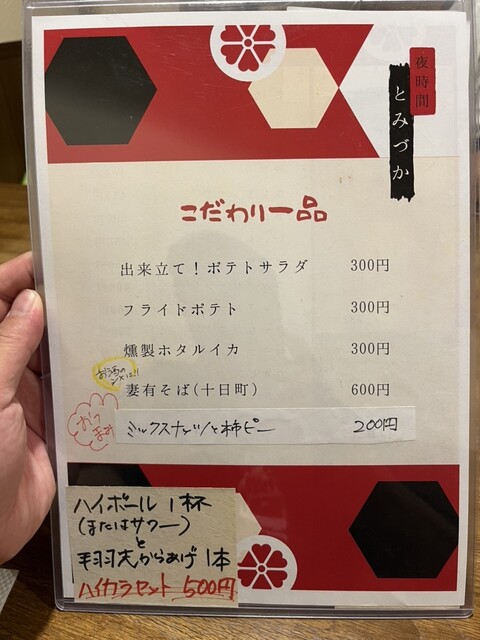 夜時間
とみづか
こだわり一品
出来立て！ポテトサラダ 300円
フライドポテト 300円
燻製ホタルイカ 300円
お酒の
シメに!!
妻有そば(十日町) 600円
おつ
まみ
ミックスナッツと柿ピー 200円
ハイボール 1杯
(またはサワー)
と
手羽先からあげ 1本
ハイカラセット 500円